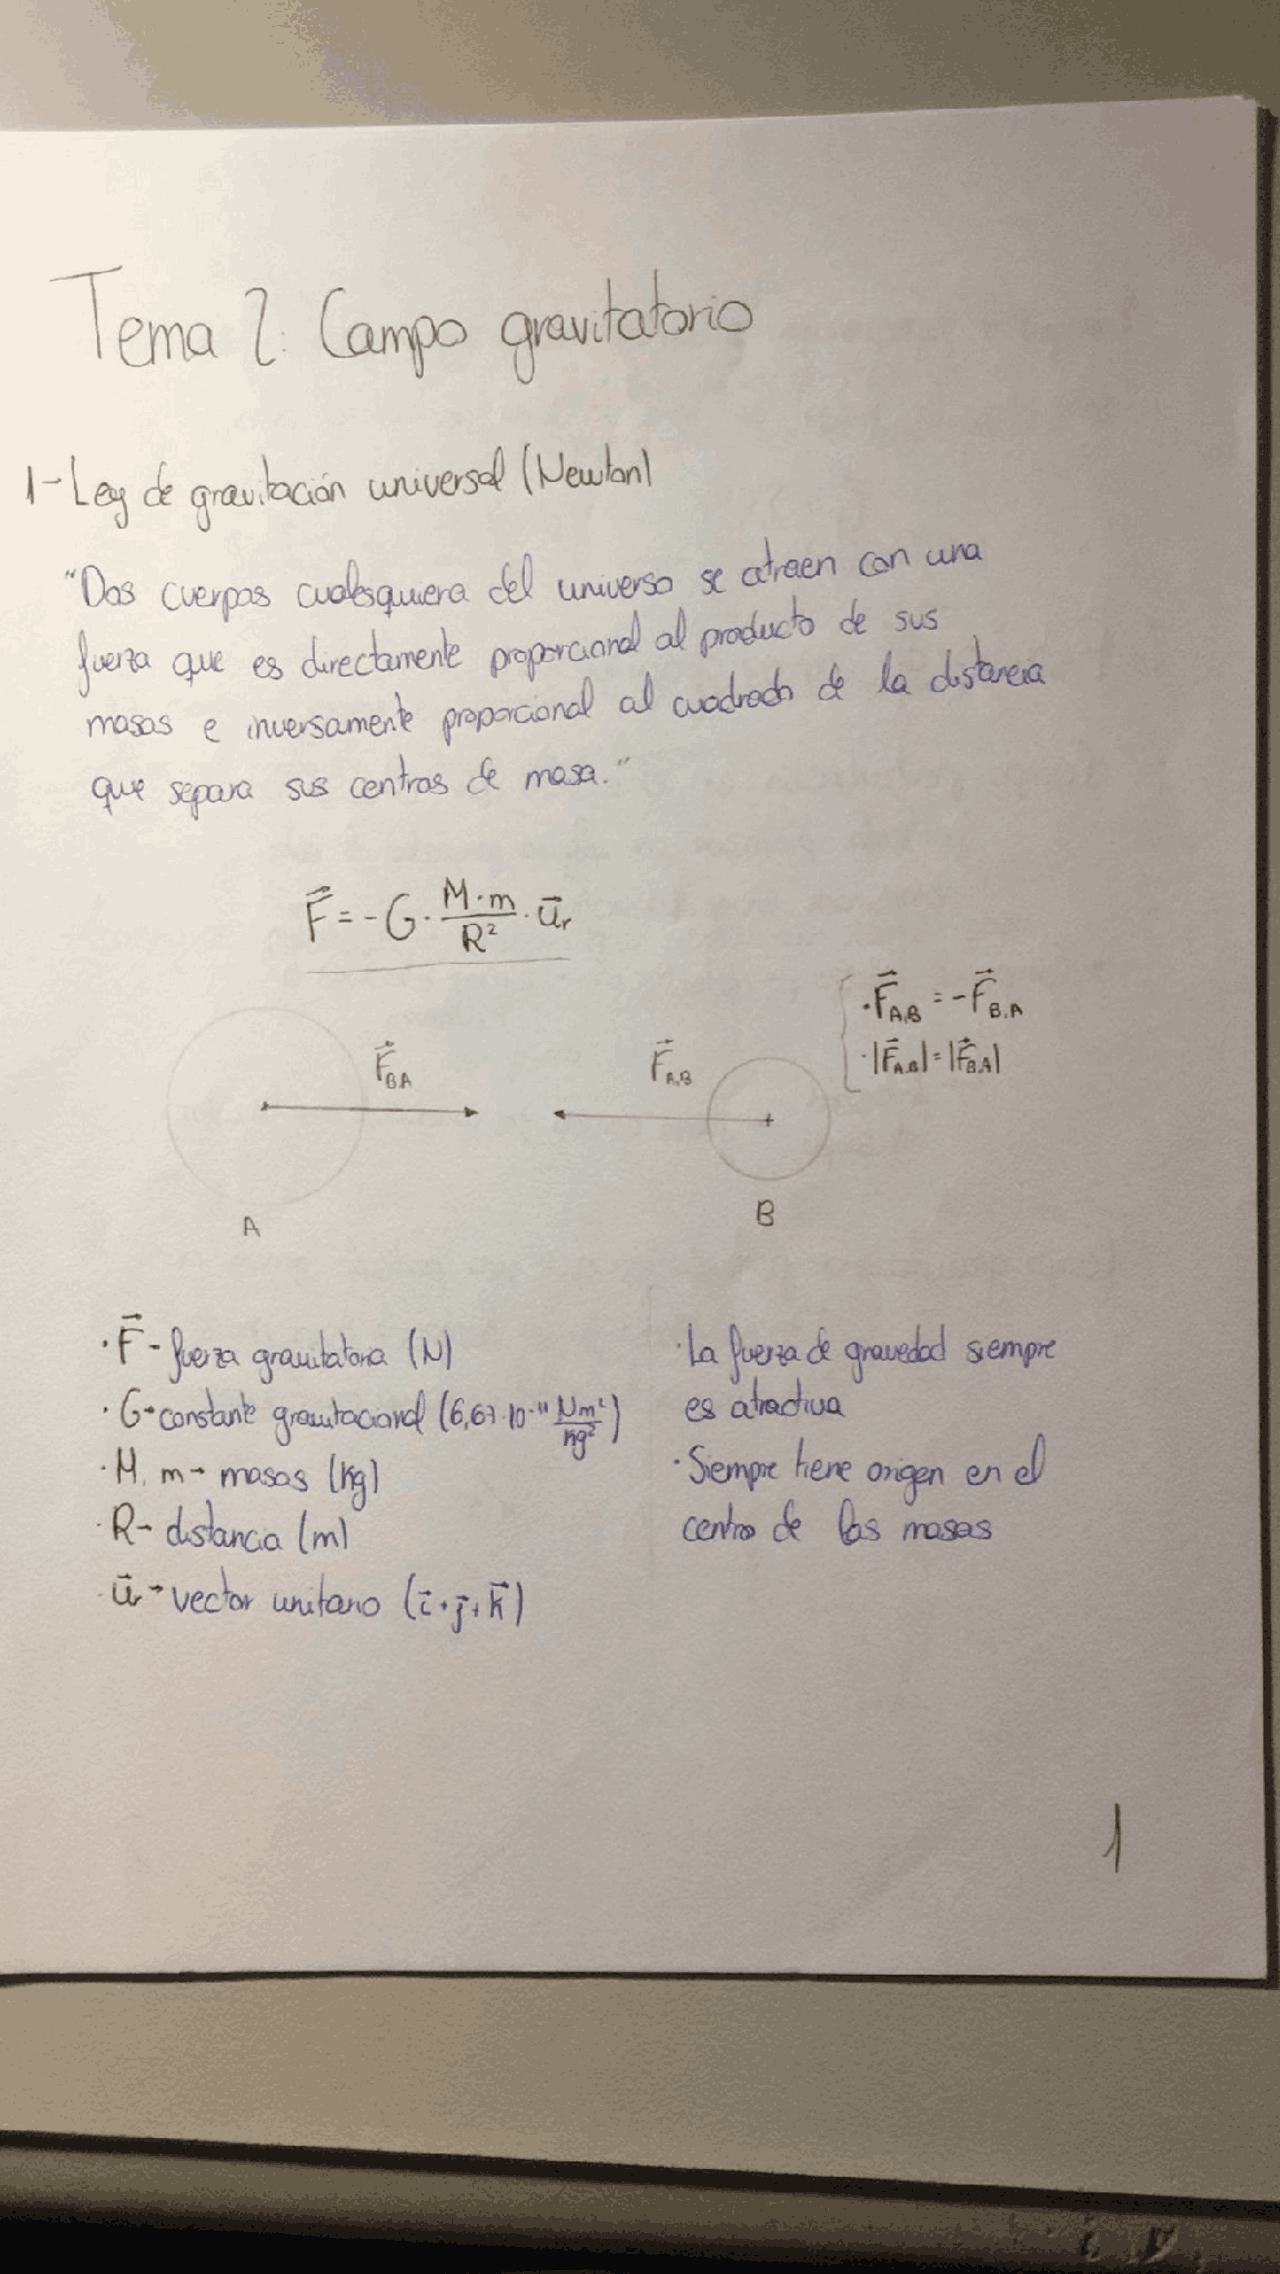 Tema 2: Campo gravitatorio
1- Ley de gravitación universal (Newton)
"Dos cuerpos cualesquiera del universo se atraen con una
fuerza que es directamente proporcional al producto de sus
masas e inversamente proporcional al cuadrado de la distancia
que separa sus centros de masa."
F⃗ = - G · M·m/R² · u⃗r
· F⃗A,B = - F⃗B,A
· |F⃗A,B| = |F⃗B,A|
F⃗B,A F⃗A,B
A B
· F⃗ - fuerza gravitatoria (N)
· G → constante gravitacional (6,67·10⁻¹¹ Nm²/kg²)
· M, m → masas (kg)
· R - distancia (m)
· u⃗r → vector unitario (i⃗ + j⃗ + k⃗)
· La fuerza de gravedad siempre
es atractiva
· Siempre tiene origen en el
centro de las masas
1